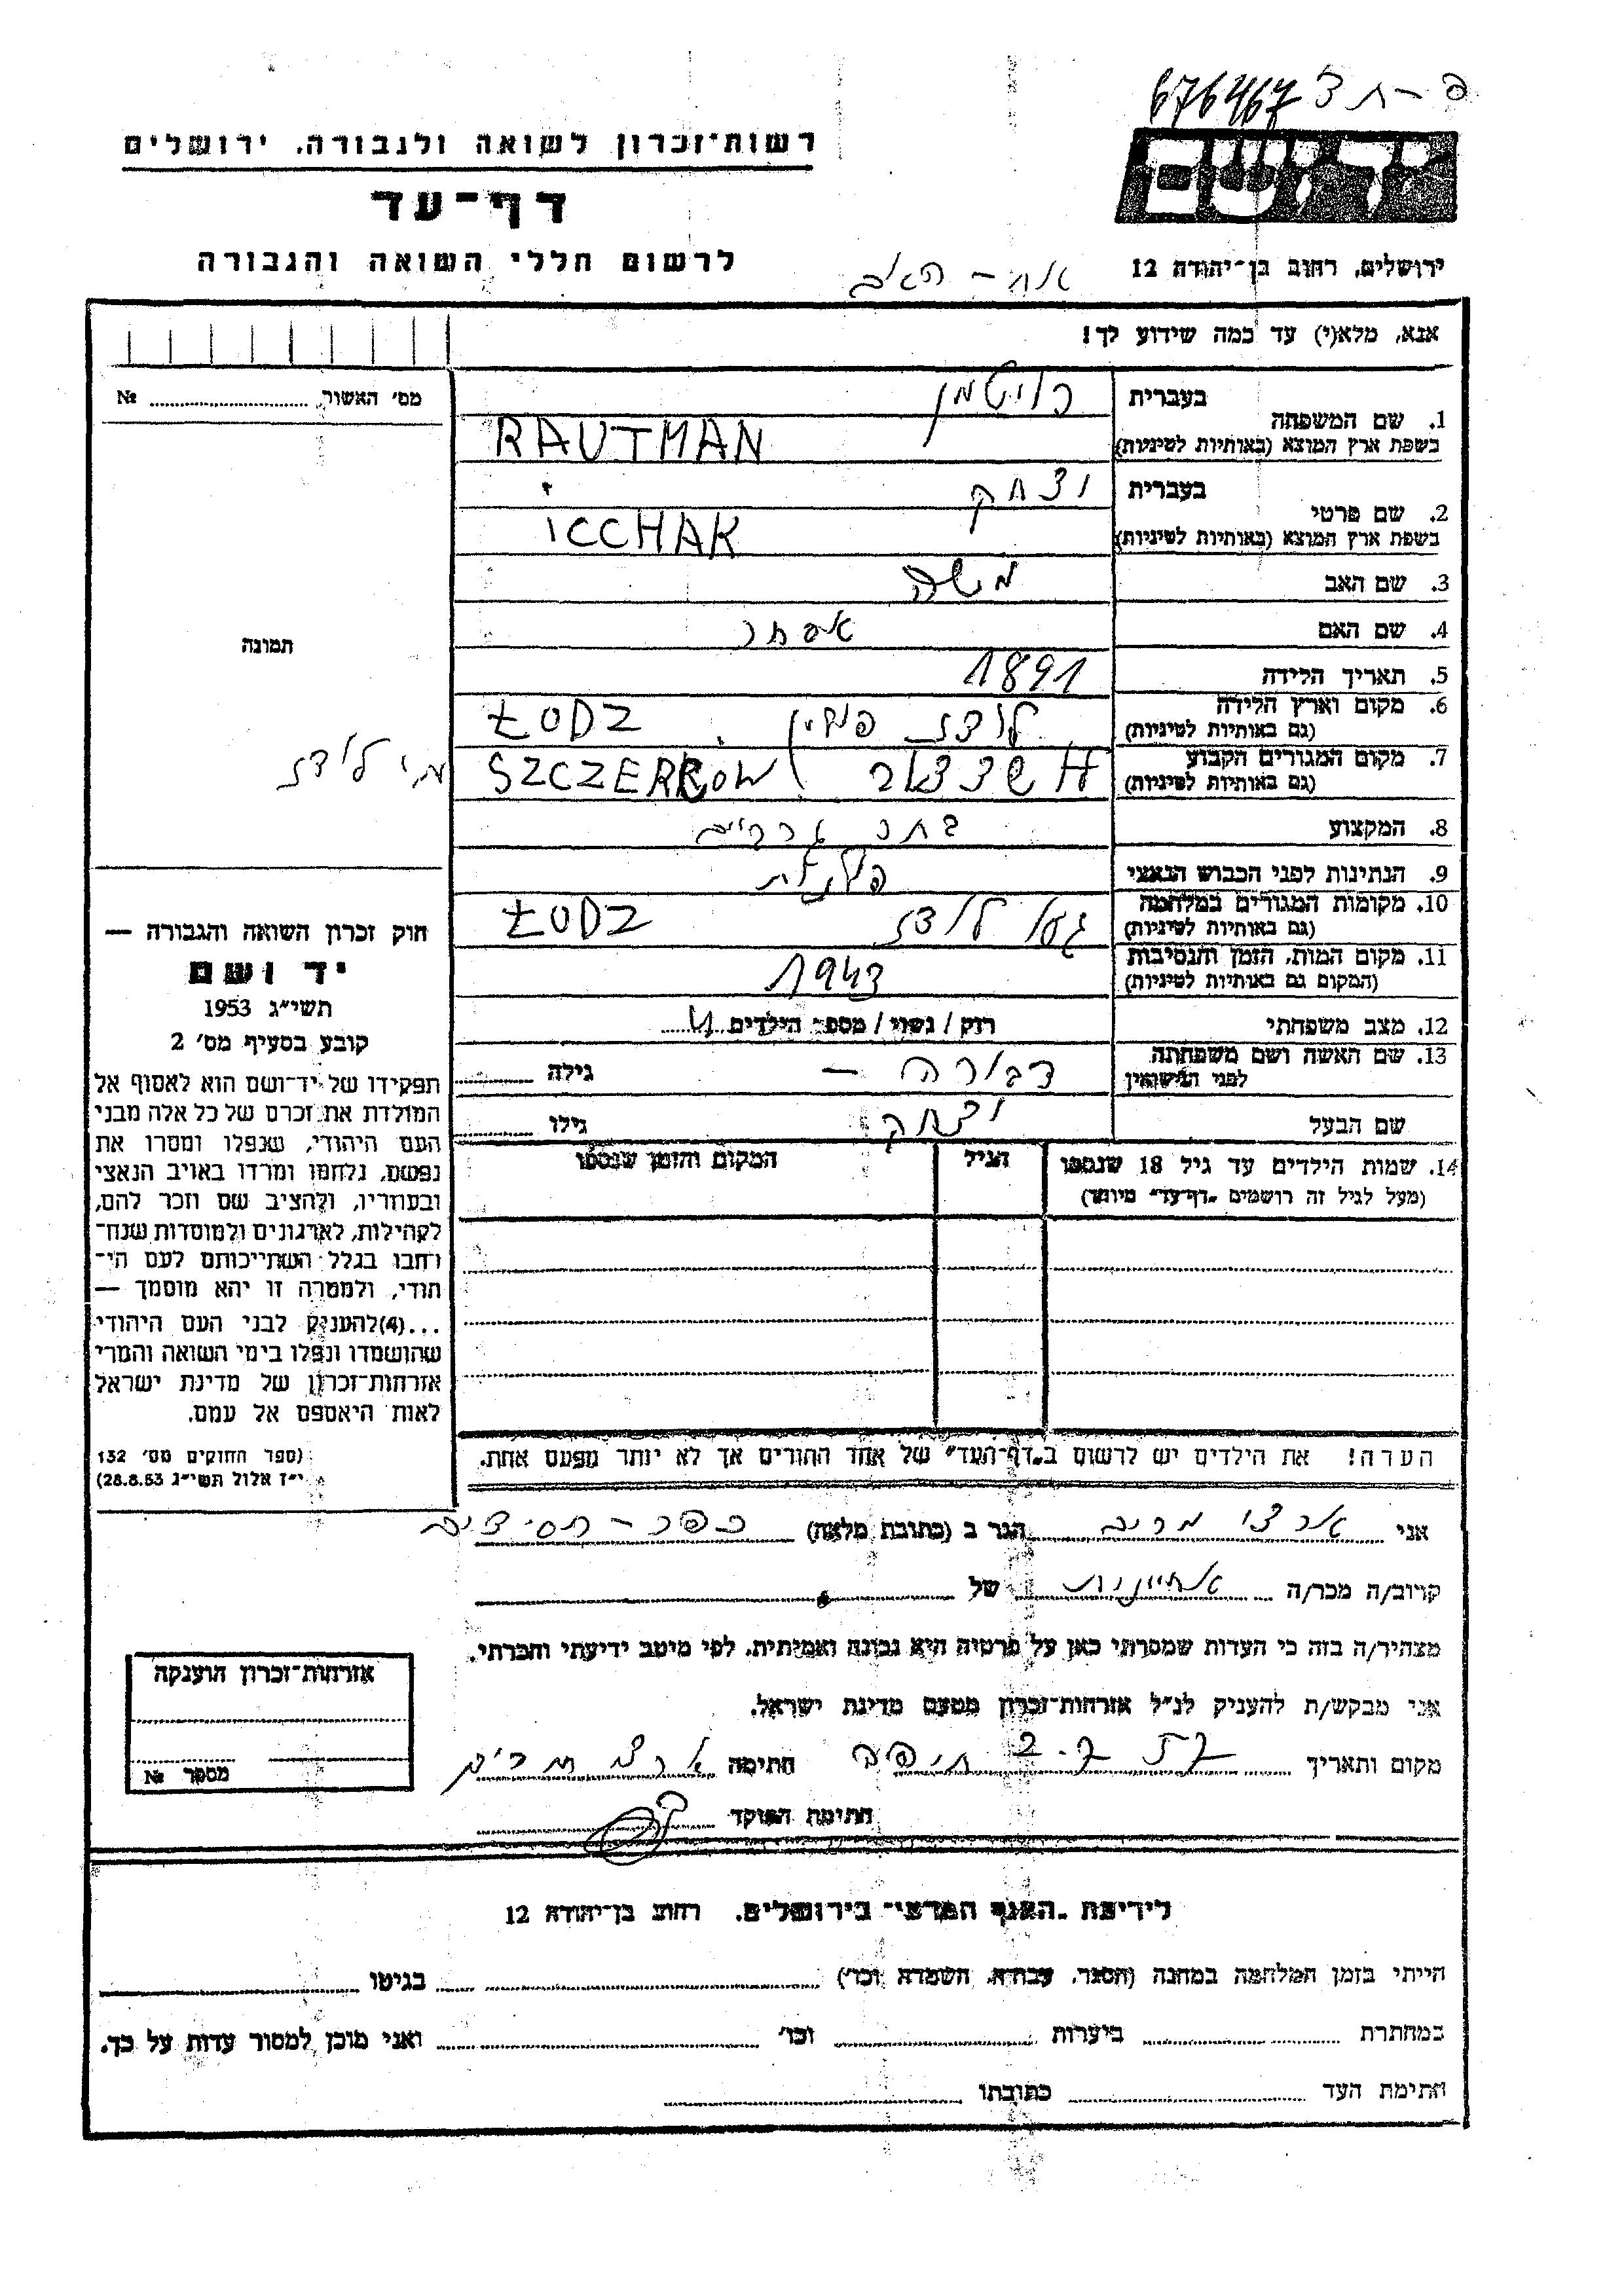 676467 פ-ת צ
יד ושם
רשות-זכרון לשואה ולגבורה, ירושלים
דף-עד
לרשום חללי השואה והגבורה
ירושלים, רחוב בן-יהודה 12
אח - האב
אנא, מלא(י) עד כמה שידוע לך!
מס׳ האשור № 
1. שם המשפחה
בעברית רויטמן
בשפת ארץ המוצא (באותיות לטיניות) RAUTMAN
2. שם פרטי
בעברית יצחק
בשפת ארץ המוצא (באותיות לטיניות) ICCHAK
3. שם האב משה
4. שם האם אסתר
תמונה
5. תאריך הלידה 1891
6. מקום וארץ הלידה לודז פולין ŁODZ
(גם באותיות לטיניות)
7. מקום המגורים הקבוע SZCZERKOW
(גם באותיות לטיניות)
מ. לודז
8. המקצוע
9. הנתינות לפני הכבוש הנאצי פולנית
10. מקומות המגורים במלחמה גטו לודז ŁODZ
(גם באותיות לטיניות)
11. מקום המות, הזמן והנסיבות 1943
(המקום גם באותיות לטיניות)
12. מצב משפחתי רווק / נשוי / מספר הילדים
13. שם האשה ושם משפחתה
לפני הנישואין דבורה - גילה
שם הבעל יצחק גילו
14. שמות הילדים עד גיל 18 שנספו הגיל המקום והזמן שנספו
(מעל לגיל זה רושמים „דף-עד" מיוחד)
חוק זכרון השואה והגבורה —
יד ושם
תשי״ג 1953
קובע בסעיף מס׳ 2
תפקידו של יד-ושם הוא לאסוף אל
המולדת את זכרם של כל אלה מבני
העם היהודי, שנפלו ומסרו את
נפשם, נלחמו ומרדו באויב הנאצי
ובעוזריו, ולהציב שם וזכר להם,
לקהילות, לארגונים ולמוסדות שנח-
רבו בגלל השתייכותם לעם הי-
הודי, ולמטרה זו יהא מוסמך —
...(4)להעניק לבני העם היהודי
שהושמדו ונפלו בימי השואה והמרי
אזרחות-זכרון של מדינת ישראל
לאות היאספם אל עמם.
(ספר החוקים מס׳ 132
י״ז אלול תשי״ג 28.8.53)
הערה! את הילדים יש לרשום ב„דף-העד" של אחד ההורים אך לא יותר מפעם אחת.
אני ארצי מרים הגר ב (כתובת מלאה) כפר-חסידים
קרוב/ה מכר/ה אחיינית של
מצהיר/ה בזה כי העדות שמסרתי כאן על פרטיה היא נכונה ואמיתית, לפי מיטב ידיעתי והכרתי.
אני מבקש/ת להעניק לנ״ל אזרחות-זכרון מטעם מדינת ישראל.
מקום ותאריך חיפה 2.7.57 חתימה
חתימת הפוקד
אזרחות-זכרון הוענקה
מספר №
לידיעת „האגף המדעי" בירושלים, רחוב בן-יהודה 12
הייתי בזמן המלחמה במחנה (הסגר, עבודה, השמדה וכו׳) בגיטו
במחתרת ביערות וכו׳ ואני מוכן למסור עדות על כך.
חתימת העד כתובתו